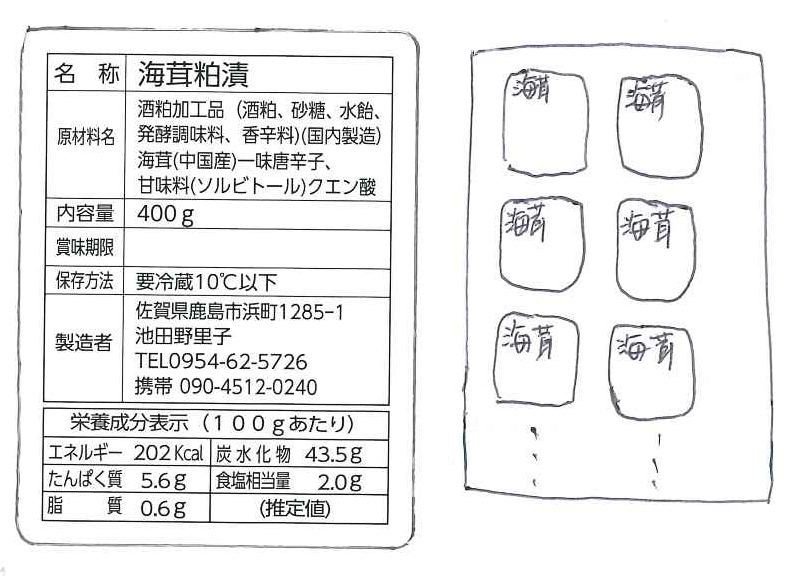 名称 海茸粕漬
原材料名 酒粕加工品（酒粕、砂糖、水飴、
発酵調味料、香辛料)(国内製造)
海茸(中国産)一味唐辛子、
甘味料(ソルビトール)クエン酸
内容量 400g
賞味期限
保存方法 要冷蔵10℃以下
製造者 佐賀県鹿島市浜町1285-1
池田野里子
TEL0954-62-5726
携帯 090-4512-0240
栄養成分表示（100gあたり）
エネルギー 202Kcal 炭水化物 43.5g
たんぱく質 5.6g 食塩相当量 2.0g
脂質 0.6g (推定値)
海茸 海茸
海茸 海茸
海茸 海茸